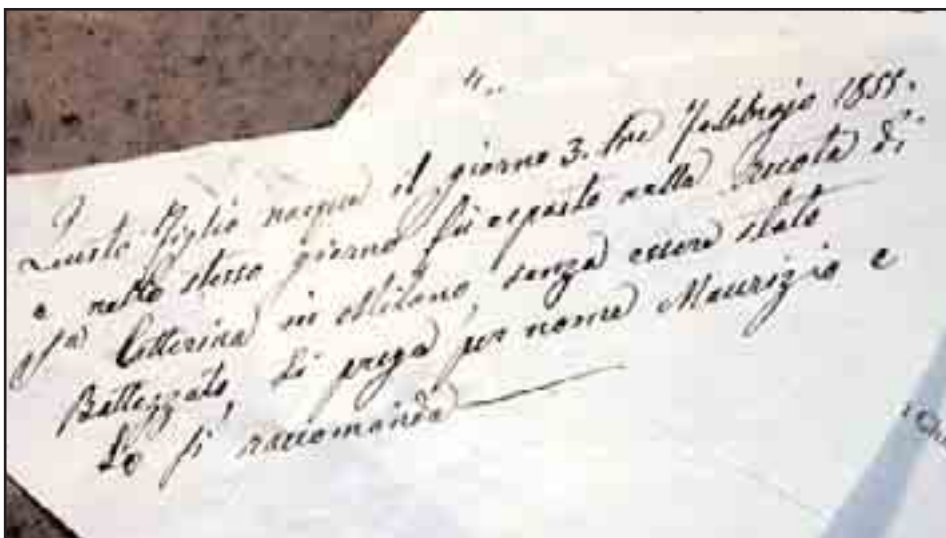 Questo Figlio nacque il giorno 3. tre Febbrajo 1855.
e nello stesso giorno fù esposto nella Ruota di
Sta Catterina in Milano, senza essere stato
Battezzato, Si prega per nome Maurizio e
Lo si raccomanda